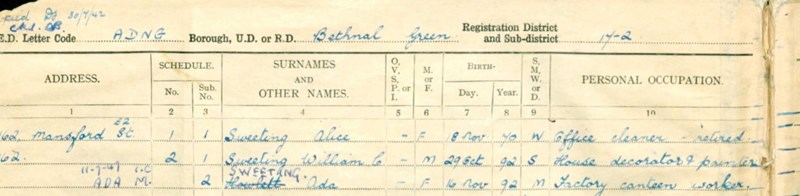 30/7/42
E.D. Letter Code ADNG Borough, U.D. or R.D. Bethnal Green Registration District and Sub-district 14-2
ADDRESS. SCHEDULE. No. Sub. No. SURNAMES AND OTHER NAMES. O, V, S, P. or I. M. or F. BIRTH- Day. Year. S, M, W, or D. PERSONAL OCCUPATION.
1 2 3 4 5 6 7 8 9 10
E2
162 Mansford St. 1 1 Sweeting Alice - F 18 Nov 70 W Office cleaner - retired
162. 2 1 Sweeting William C - M 29 Oct 92 S House decorator & painter
11-7-47 SWEETING.
ADA M. 2 Howlett Ada F 16 Nov 92 M Factory canteen worker.